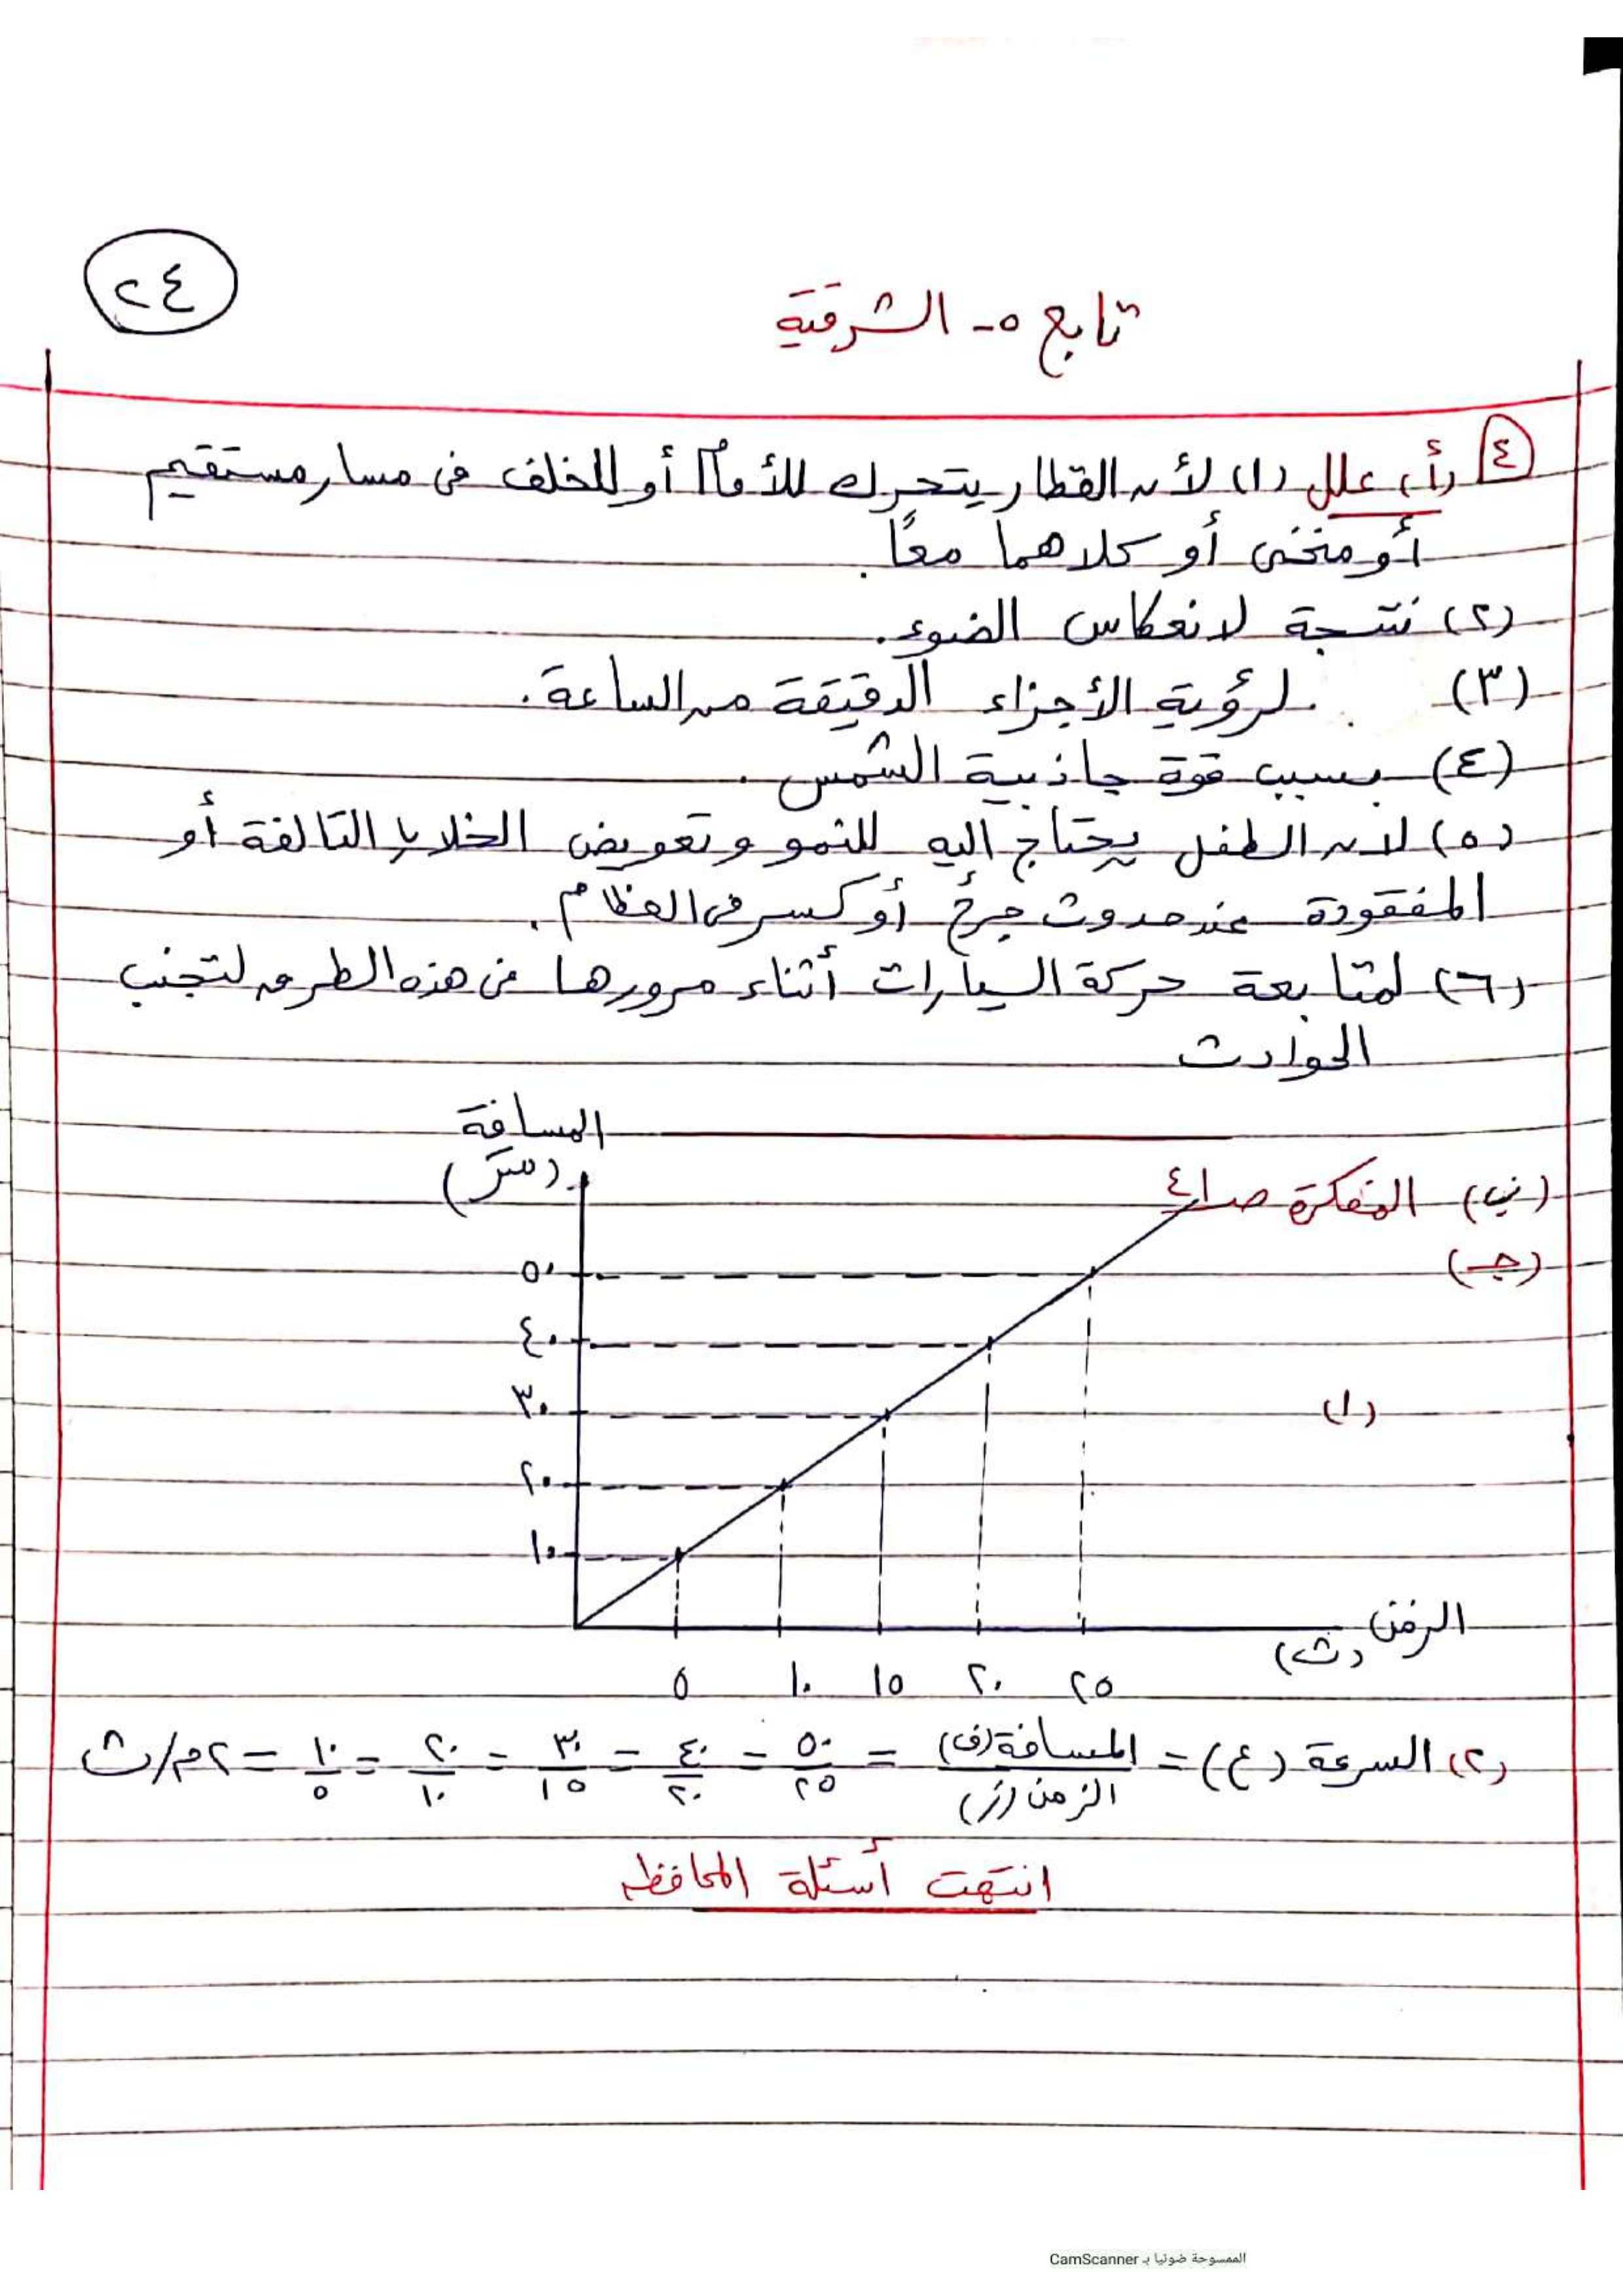 ٢٤
تابع ٥- الشرقية
٤ (أ) علل (١) لأن القطار يتحرك للأمام أو للخلف فى مسار مستقيم
أو منحنى أو كلاهما معًا.
(٢) نتيجة لانعكاس الضوء.
(٣) لرؤية الأجزاء الدقيقة من الساعة.
(٤) بسبب قوة جاذبية الشمس.
(٥) لان الطفل يحتاج اليه للنمو وتعويض الخلايا التالفة أو
المفقودة عند حدوث جرح أو كسر فى العظام.
(٦) لمتابعة حركة السيارات أثناء مرورها فى هذه الطرق لتجنب
الحوادث
المسافة
(متر)
(ب) المفكرة صـ ٤١
(جـ)
٥٠
٤٠
٣٠
(١)
٢٠
١٠
الزمن
(ث)
٥ ١٠ ١٥ ٢٠ ٢٥
(٢) السرعة (ع) = المسافة (ف) / الزمن (ز) = ٥٠/٢٥ = ٤٠/٢٠ = ٣٠/١٥ = ٢٠/١٠ = ١٠/٥ = ٢م/ث
انتهت أسئلة المحافظه
الممسوحة ضوئيا بـ CamScanner